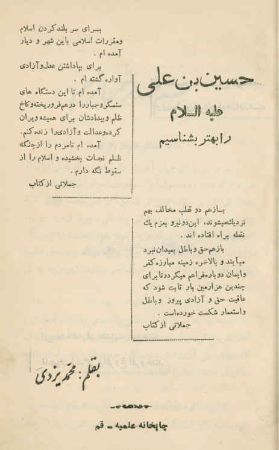 حسین بن علی
علیه السلام
را بهتر بشناسیم
بسرای سر بلند کردن اسلام
و مقررات اسلامی باین شهر و دیار
آمده ام .
برای بپاداشتن عدل و آزادی
آواره گشته ام .
آمده ام تا این دستگاه های
ستمگر و جبار را در هم فرو ریخته و کاخ
ظلم و بیدادشان برای همیشه ویران
کرده و عدالت و آزادی را زنده کنم.
آمده ام تا مردم را از چنگه
ظلم نجات بخشیده و اسلام را از
سقوط نگه دارم .
جملاتی از کتاب
باز هم دو قطب مخالف بهم
نزدیک میشوند، این دو نیرو بعزم یك
نقطه براه افتاده اند .
باز هم حق و باطل بمیدان نبرد
میآیند و بالاخره زمینه مبارزه کفر
و ایمان دوباره فراهم میگردد تا برای
چندین هزارمین بار ثابت شود که
عاقبت حق و آزادی پیروز و باطل
و استعمار شکست خورده است .
جملاتی از کتاب
بقلم : محمد یزدی
چاپخانه علمیه ـ قم